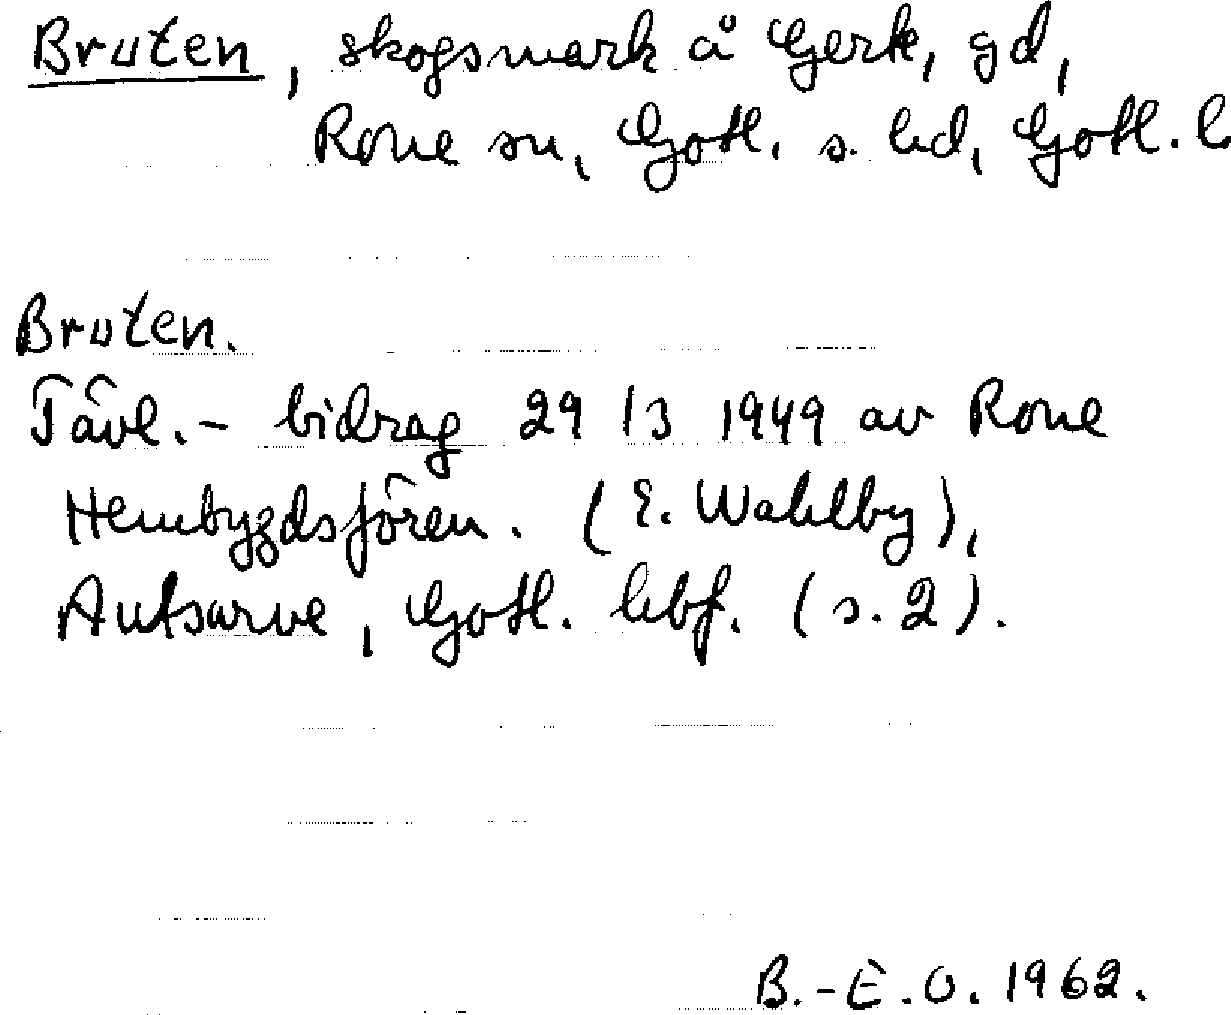 Bruten, skogsmark å Gerk, gd,
Rone sn, Gotl. s. hd, Gotl. l
Bruten.
Tävl.- bidrag 29/3 1949 av Rone
Hembygdsfören. (E. Wahlby),
Autsarve, Gotl. lbf. (s. 2).
B.-E.O. 1962.